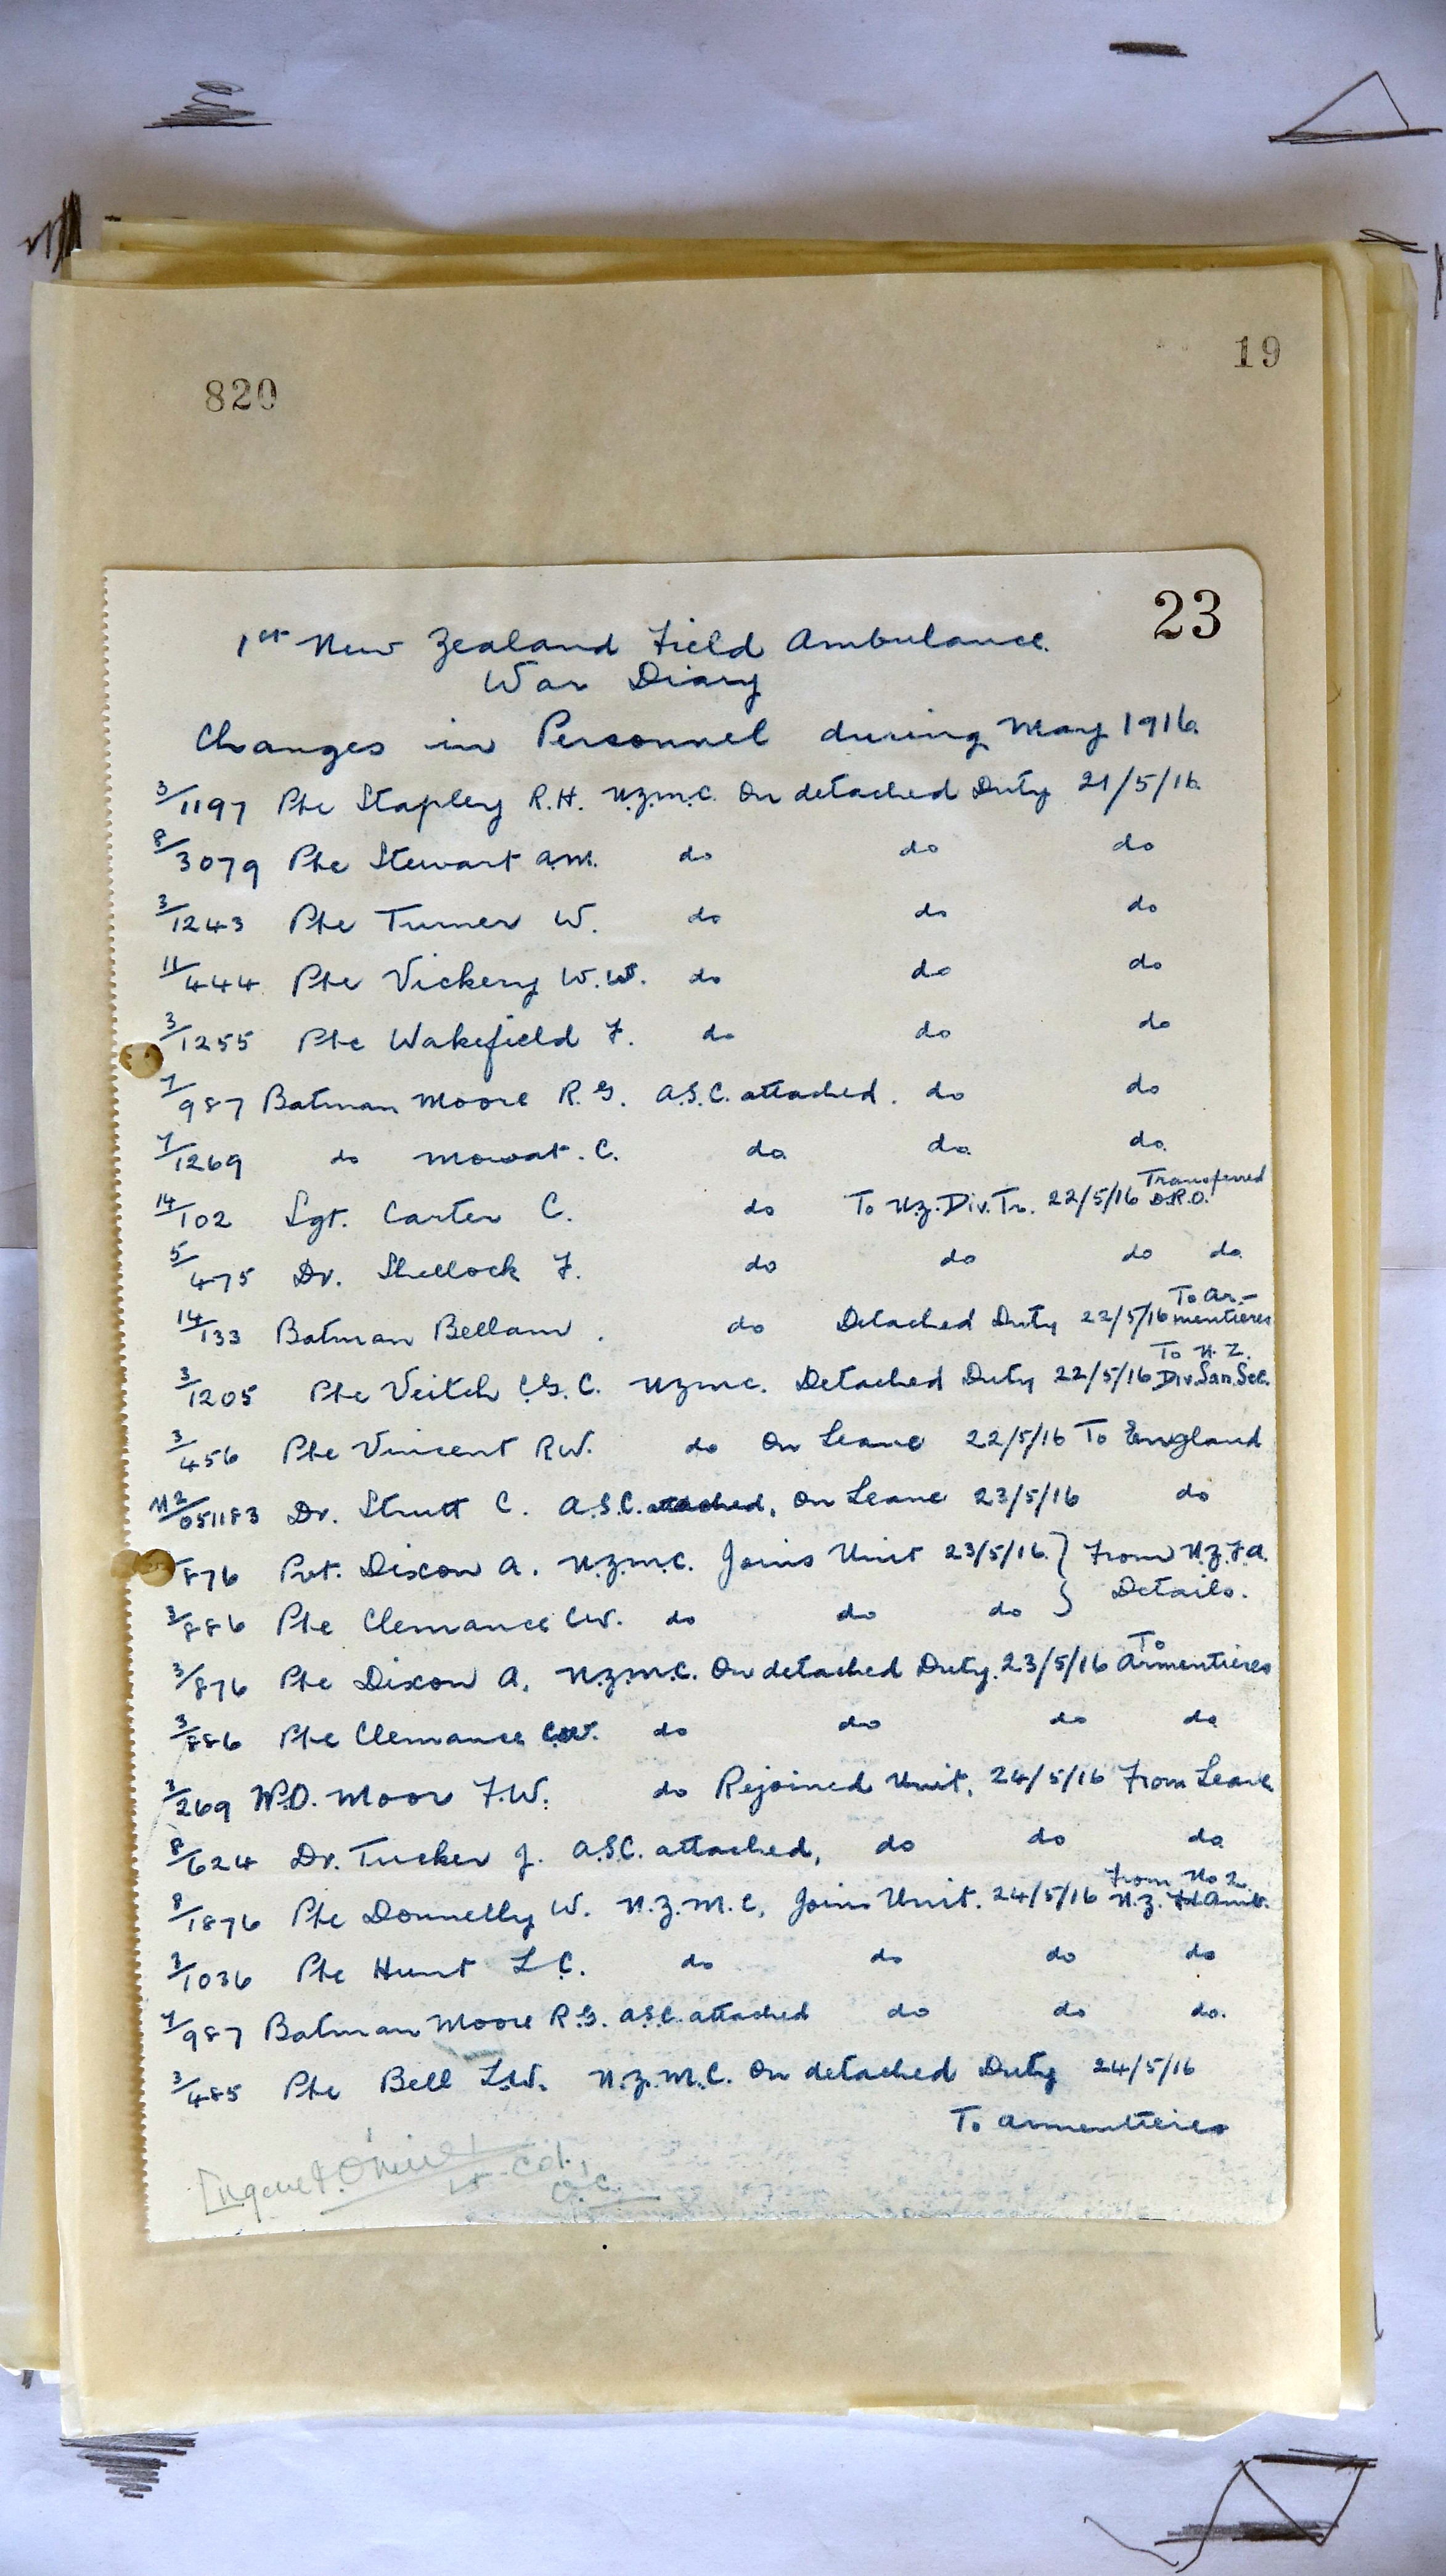 820
19
23
1st New Zealand Field Ambulance.
War Diary
Changes in Personnel during May 1916.
3/1197 Pte Stapley R.H. N.Z.M.C. On detached Duty 21/5/16.
8/3079 Pte Stewart A.M. do do do
3/1243 Pte Turner W. do do do
11/444 Pte Vickery W.W. do do do
3/1255 Pte Wakefield F. do do do
7/987 Batman Moore R.G. A.S.C. attached. do do
7/1269 do Mowat. C. do. do. do.
14/102 Sgt. Carter C. do To N.Z. Div. Tr. 22/5/16 Transferred D.R.O.
5/475 Dr. Shellock F. do do do do.
14/133 Batman Bellam. do Detached Duty 22/5/16 To Ar-mentieres
3/1205 Pte Veitch C.G.C. NZMC. Detached Duty 22/5/16 To N.Z. Div. San. Sec.
3/456 Pte Vincent R.W. do On Leave 22/5/16 To England
M2/051183 Dr. Strutt C. A.S.C. attached, On Leave 23/5/16 do
876 Pvt. Dixon A. N.Z.M.C. Joins Unit 23/5/16. } From N.Z.F.A.
3/886 Pte Clemance C.W. do do do } Details.
3/876 Pte Dixon A. N.Z.M.C. On detached Duty. 23/5/16 To Armentieres
3/886 Pte Clemance C.W. do do do do
3/269 W.O. Moor F.W. do Rejoined Unit. 24/5/16 From Leave
8/624 Dr. Tucker J. A.S.C. attached, do do do
8/1876 Pte Donnelly W. N.Z.M.C, Joins Unit. 24/5/16 From No 2 N.Z. Fd Amb.
3/1036 Pte Hunt L.C. do do do do
7/987 Batman Moore R.G. A.S.C. attached do do do.
3/485 Pte Bell L.W. N.Z.M.C. On detached Duty 24/5/16
To Armentieres
Lt-Col.,
O.C.